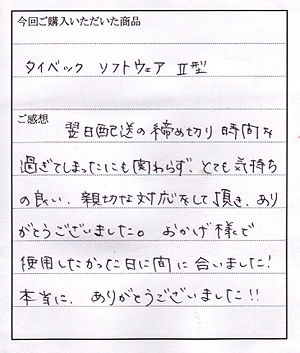 今回ご購入いただいた商品
タイベック ソフトウェア Ⅱ型
ご感想
翌日配送の締め切り時間を
過ぎてしまったにも関わらず、とても気持ち
の良い、親切な対応をして頂き、あり
がとうございました。 おかげ様で
使用したかった日に間に合いました!
本当に、ありがとうございました!!